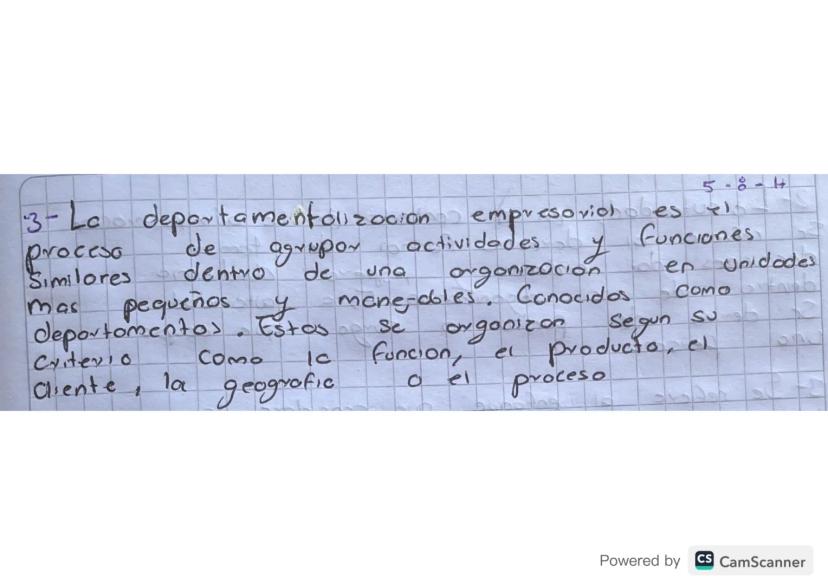 5-8-4
3- La departamentalizacion empresarial es el
proceso de agrupar actividades y funciones
Similares dentro de una organización en unidades
mas pequeños y manejables. Conocidos como
departamentos. Estas se organizan segun su
Criterio como la funcion, el producto, el
cliente, la geografia o el proceso
Powered by CS CamScanner